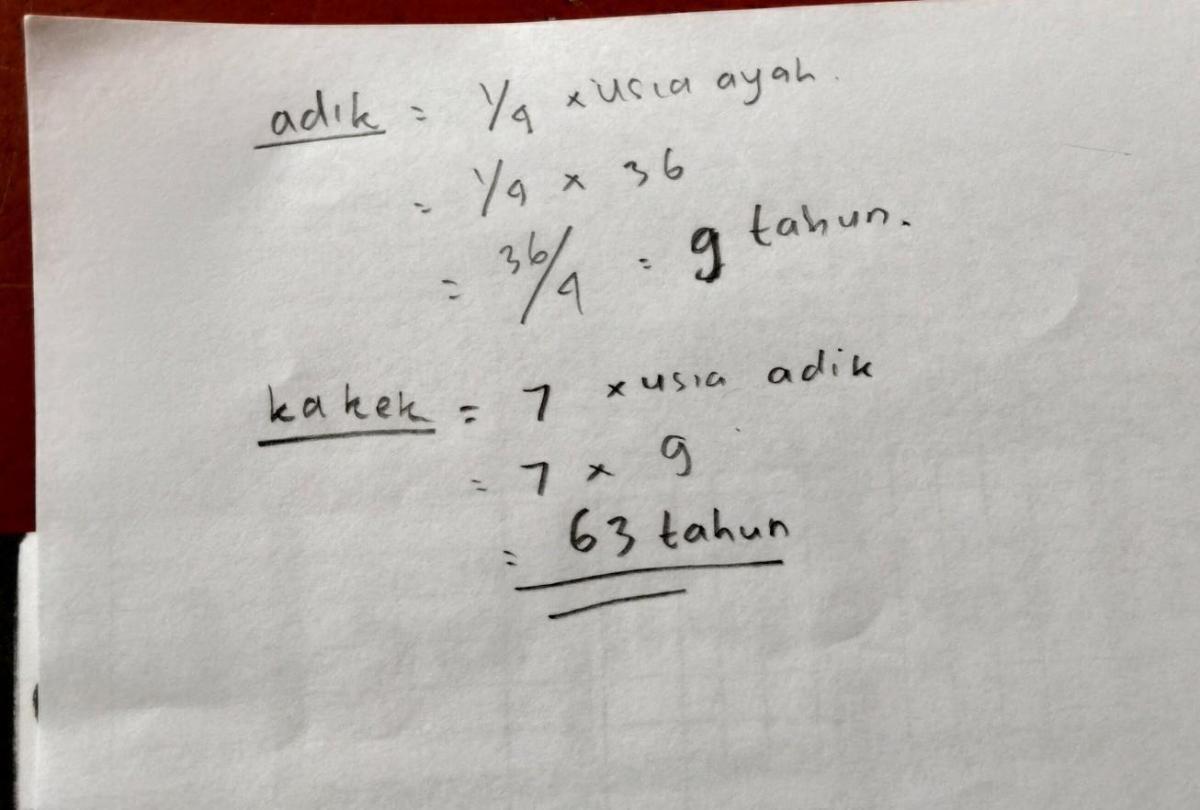 adik = 1/4 x usia ayah.
= 1/4 x 36
= 36/4 = 9 tahun.
kakek = 7 x usia adik
= 7 x 9
= 63 tahun